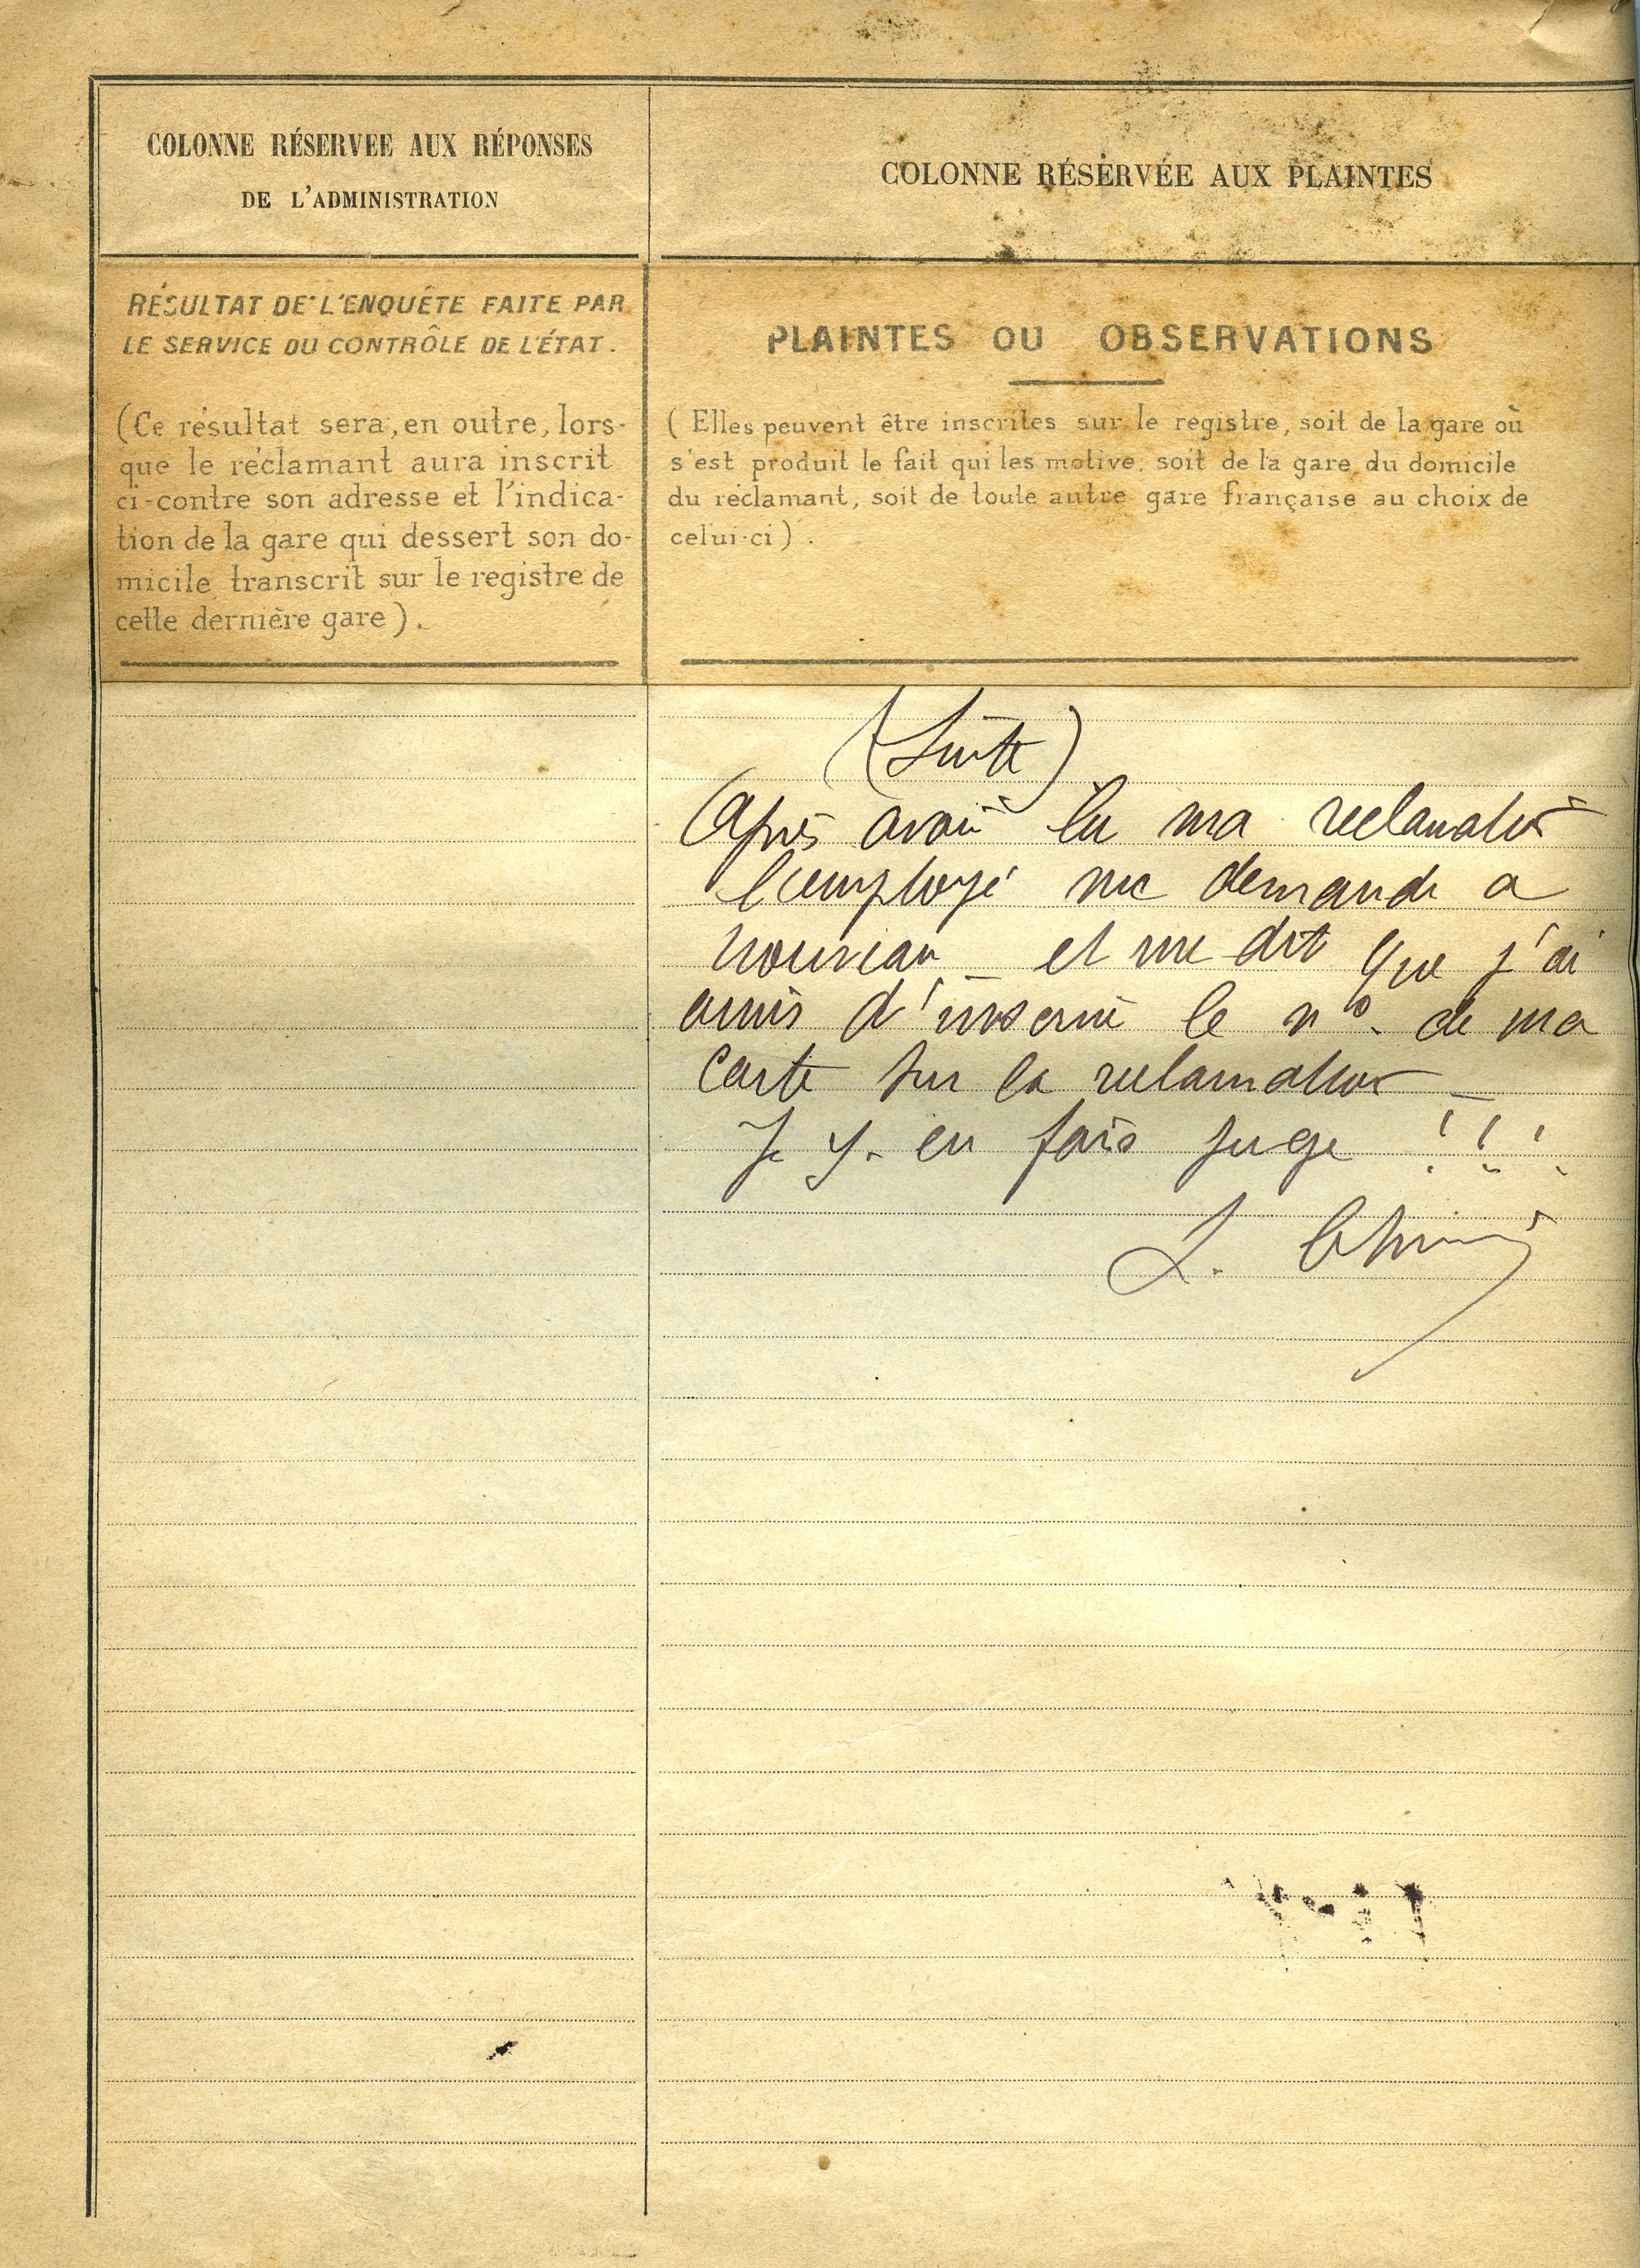 COLONNE RÉSERVEE AUX RÉPONSES
DE L'ADMINISTRATION
COLONNE RÉSERVÉE AUX PLAINTES
RÉSULTAT DE L'ENQUÊTE FAITE PAR
LE SERVICE DU CONTRÔLE DE L'ÉTAT.
(Ce résultat sera, en outre, lors-
que le réclamant aura inscrit
ci-contre son adresse et l'indica-
tion de la gare qui dessert son do-
micile transcrit sur le registre de
cette dernière gare).
PLAINTES OU OBSERVATIONS
(Elles peuvent être inscrites sur le registre, soit de la gare où
s'est produit le fait qui les motive, soit de la gare du domicile
du réclamant, soit de toute autre gare française au choix de
celui-ci).
(Suite)
Après avoir lu ma reclamation
l'employé me demande a
nouveau _ et me dit que j'ai
omis d'inscrire le nº. de ma
carte sur la reclamation _
Je y. en fais juge !!!
L.